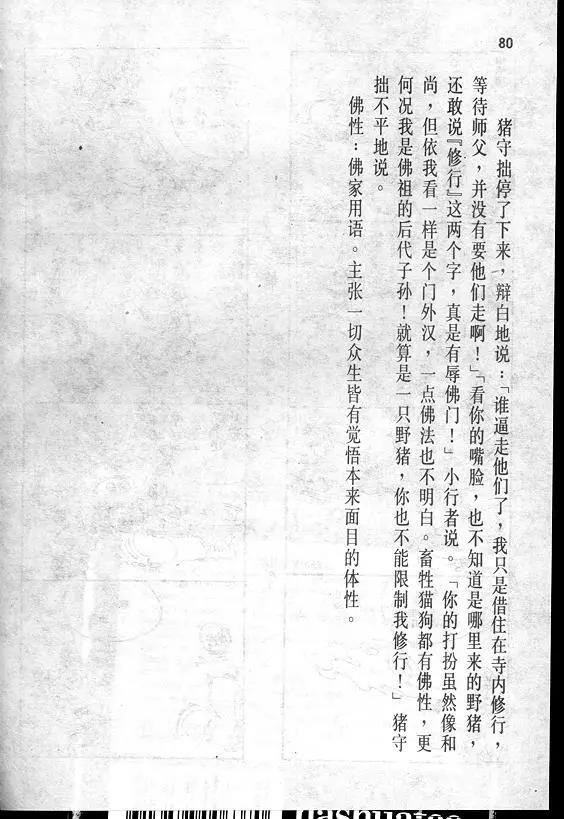 80
猪守拙停了下来，辩白地说：「谁逼走他们了，我只是借住在寺内修行，
等待师父，并没有要他们走啊！」「看你的嘴脸，也不知道是哪里来的野猪，
还敢说『修行』这两个字，真是有辱佛门！」小行者说。「你的打扮虽然像和
尚，但依我看一样是个门外汉，一点佛法也不明白。畜牲猫狗都有佛性，更
何况我是佛祖的后代子孙！就算是一只野猪，你也不能限制我修行！」猪守
拙不平地说。
佛性：佛家用语。主张一切众生皆有觉悟本来面目的体性。